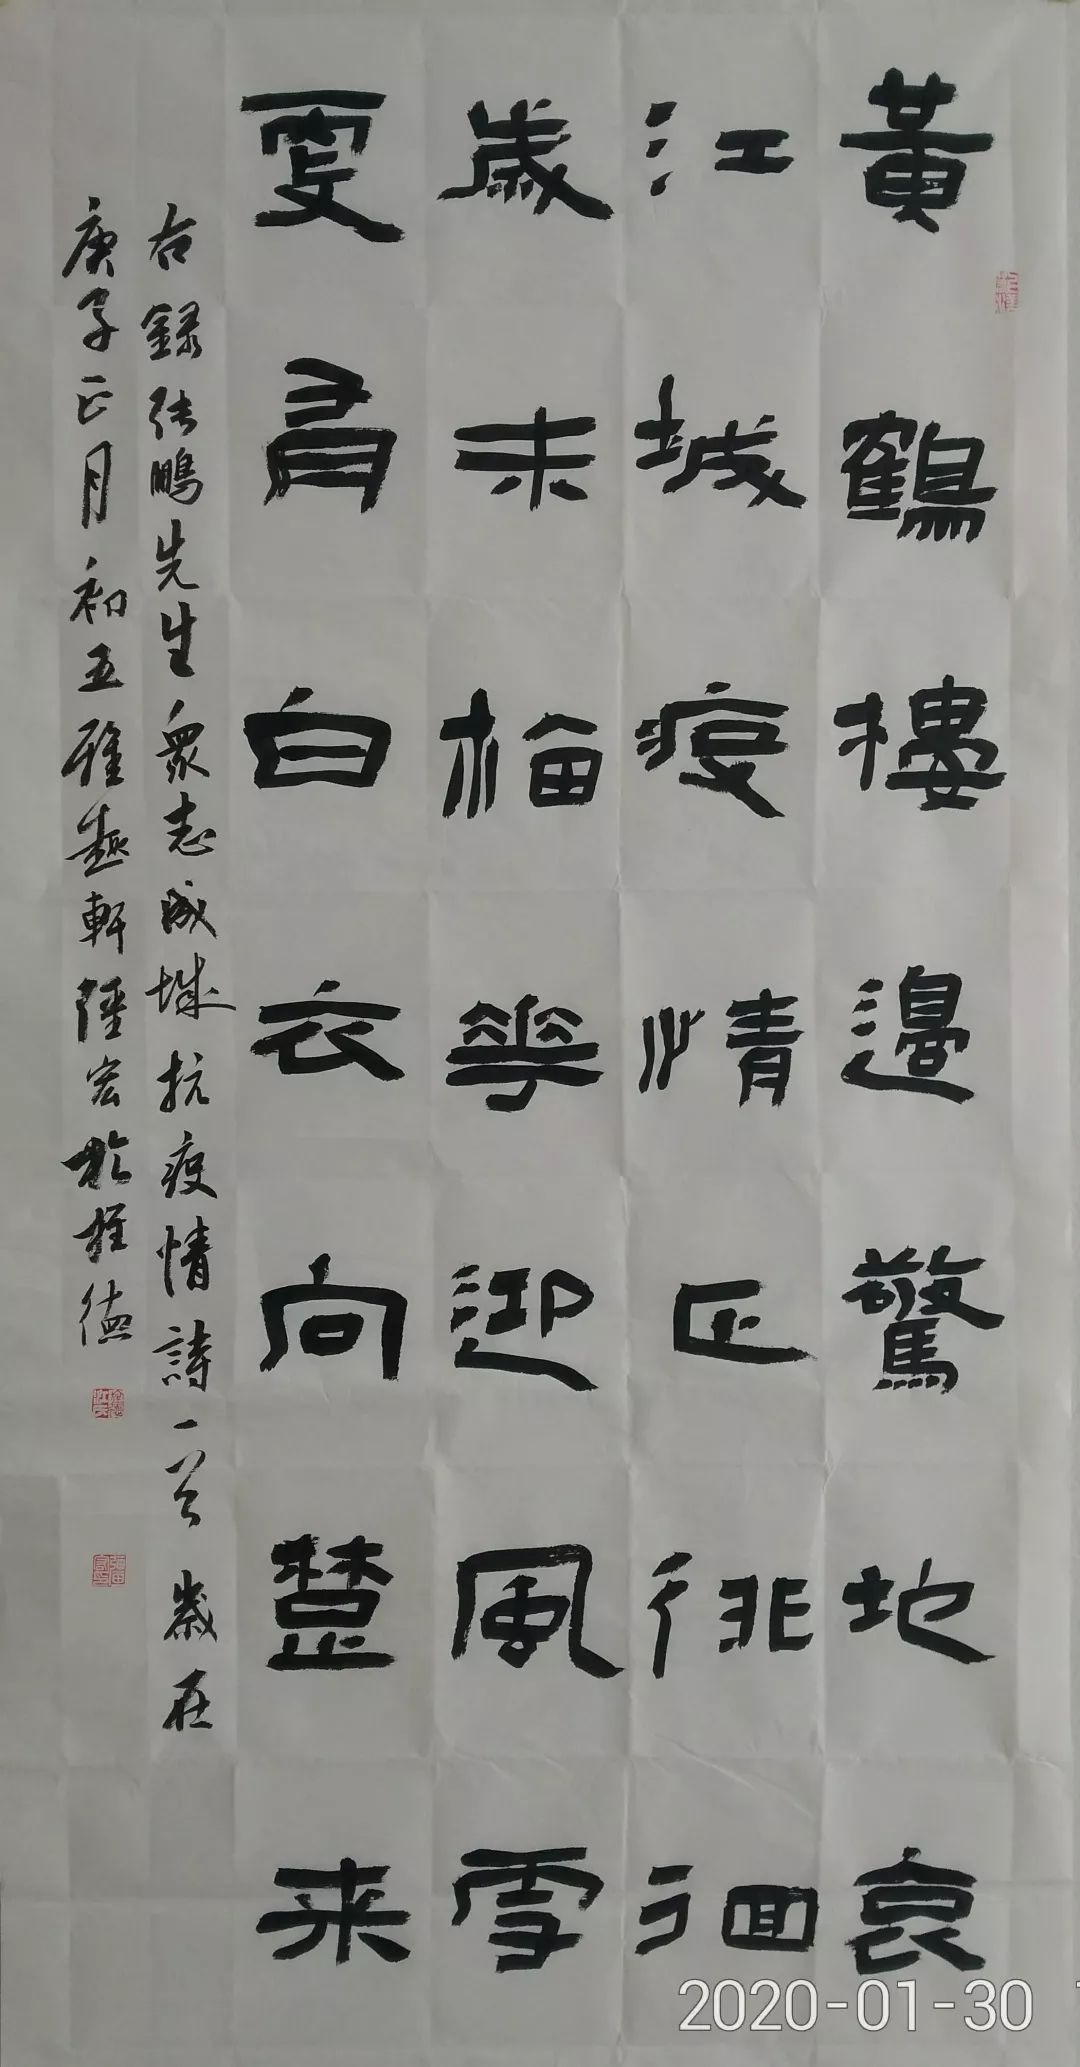 黃鶴樓邊驚地哀
江城疫情正徘徊
歲末梅華迎風雪
更有白衣向楚来
右録張鵬先生衆志成城抗疫情詩一首 歲在
庚子正月初五雅趣軒陸宏於旌德
2020-01-30